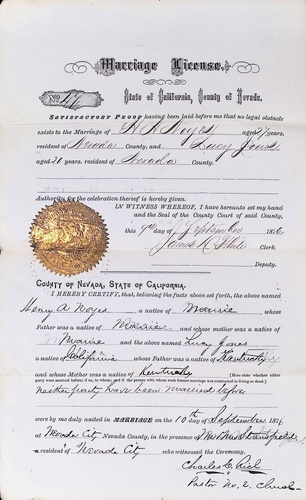 Marriage License.
No 47
State of California, County of Nevada.
SATISFACTORY PROOF having been laid before me that no legal obstacle
exists to the Marriage of H A Noyes aged 27 years,
resident of Nevada County, and Lucy Jones
aged 20 years, resident of Nevada County.
Authority for the celebration thereof is hereby given.
IN WITNESS WHEREOF, I have hereunto set my hand
and the Seal of the County Court of said County,
this 9th day of September 1876
James H White Clerk.
Deputy.
COUNTY OF NEVADA, STATE OF CALIFORNIA.
I HEREBY CERTIFY, that, believing the facts above set forth, the above named
Henry A Noyes a native of Maine whose
Father was a native of Maine and whose mother was a native
of Maine and the Lucy Jones
a native of California whose Father was a native of Kentucky
and whose Mother was a native of Kentucky (Here state whether either
party were married before, if so, to whom; and if the person with whom such former marriage was contracted is living or dead.)
neither party have been married before
were by me duly united in MARRIAGE on the 10th of September 1876
at Nevada City Nevada County, in the presence of Mrs
a resident of Nevada City who witnessed the Ceremony.
Charles E. Rich
Pastor M. E. Church